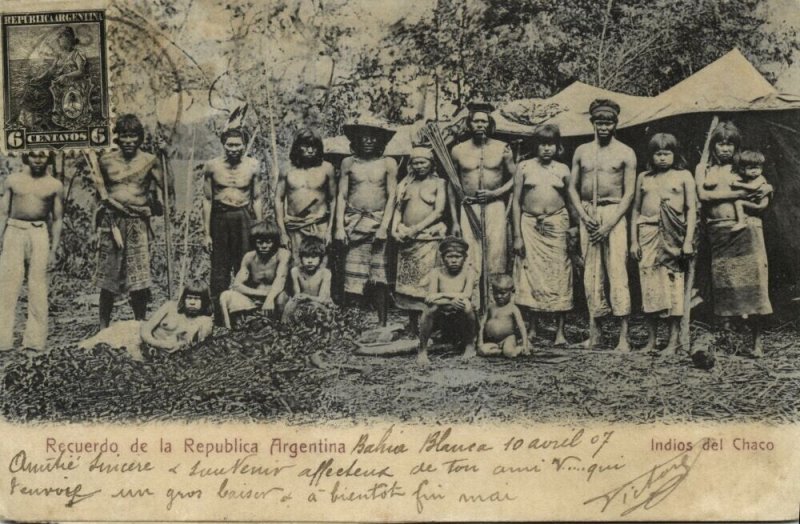 REPÚBLICA ARGENTINA
6 CENTAVOS 6
Recuerdo de la Republica Argentina Bahia Blanca 10 avril 07 Indios del Chaco
Amitié sincère & souvenir affectueux de ton ami V....qui
t'envoie un gros baiser & à bientôt fin mai
Victor